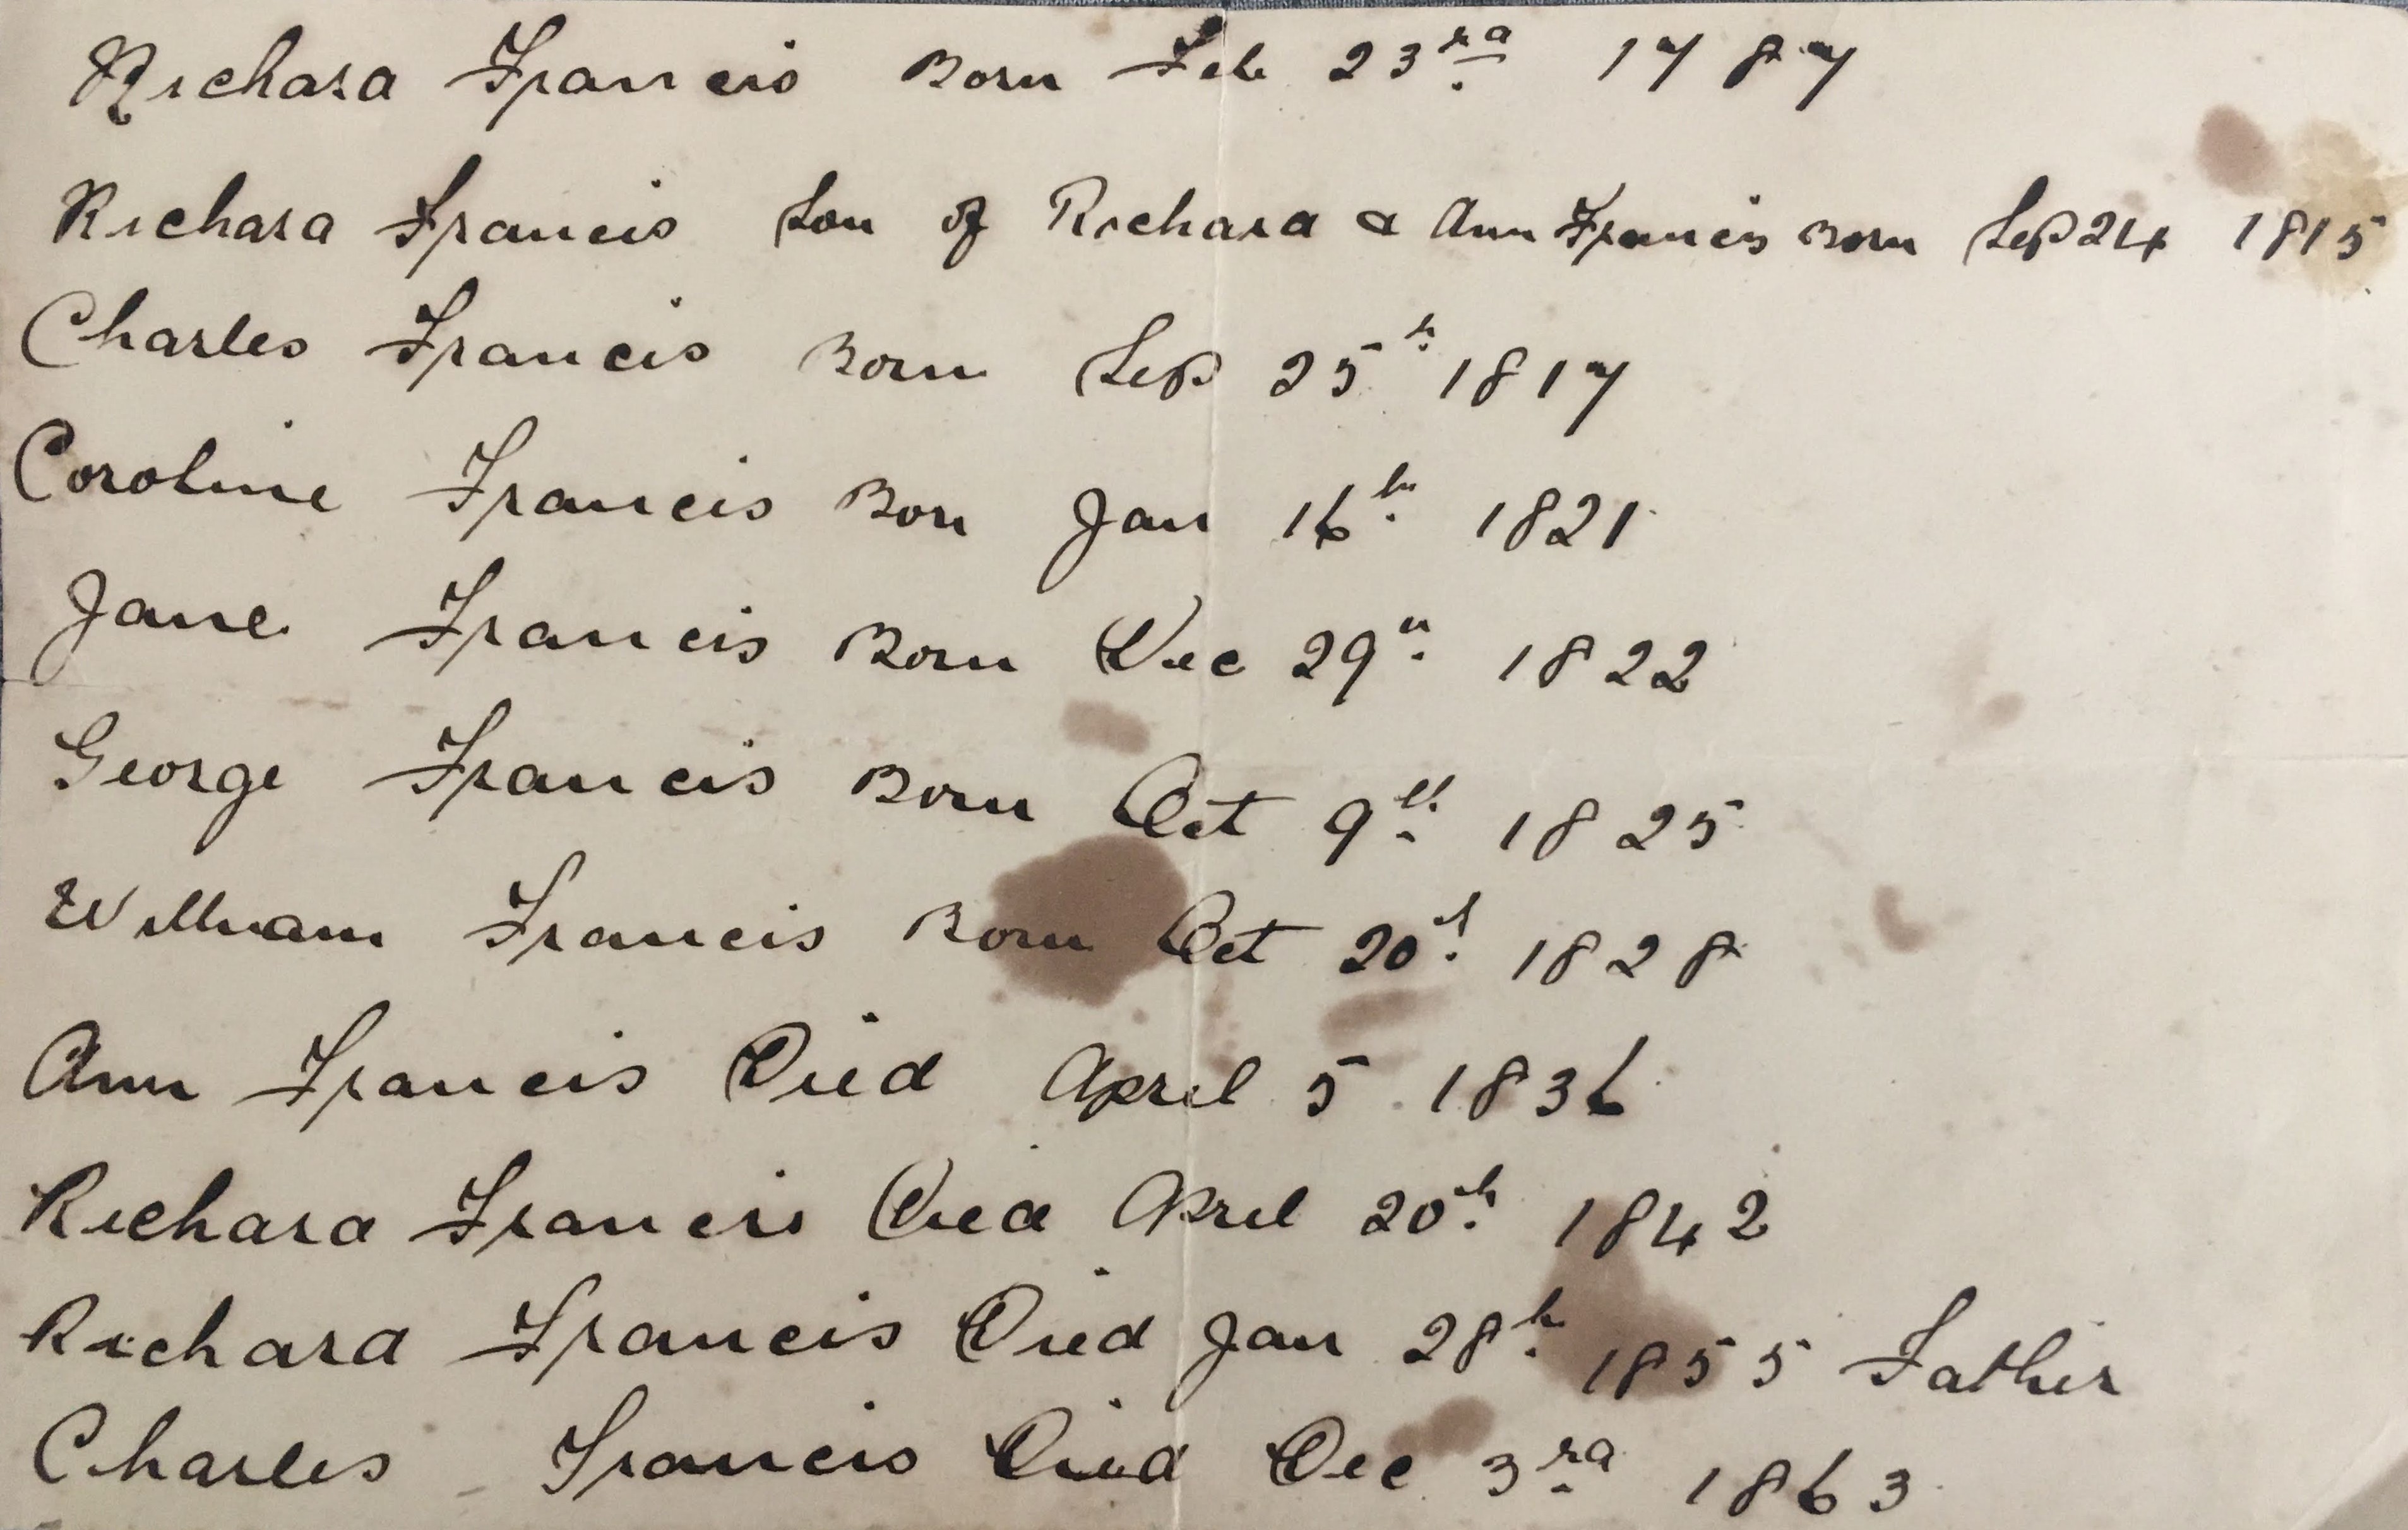 Richard Francis Born Feb 23rd 1787
Richard Francis Son of Richard & Ann Francis Born Sep 24 1815
Charles Francis Born Sep 25th 1817
Coroline Francis Born Jan 16th 1821
Jane Francis Born Dec 29th 1822
George Francis Born Oct 9th 1825
William Francis Born Oct 20th 1828
Ann Francis Died April 5 1836
Richard Francis Died April 20th 1842
Richard Francis Died Jan 28th 1855 Father
Charles Francis Died Dec 3rd 1863